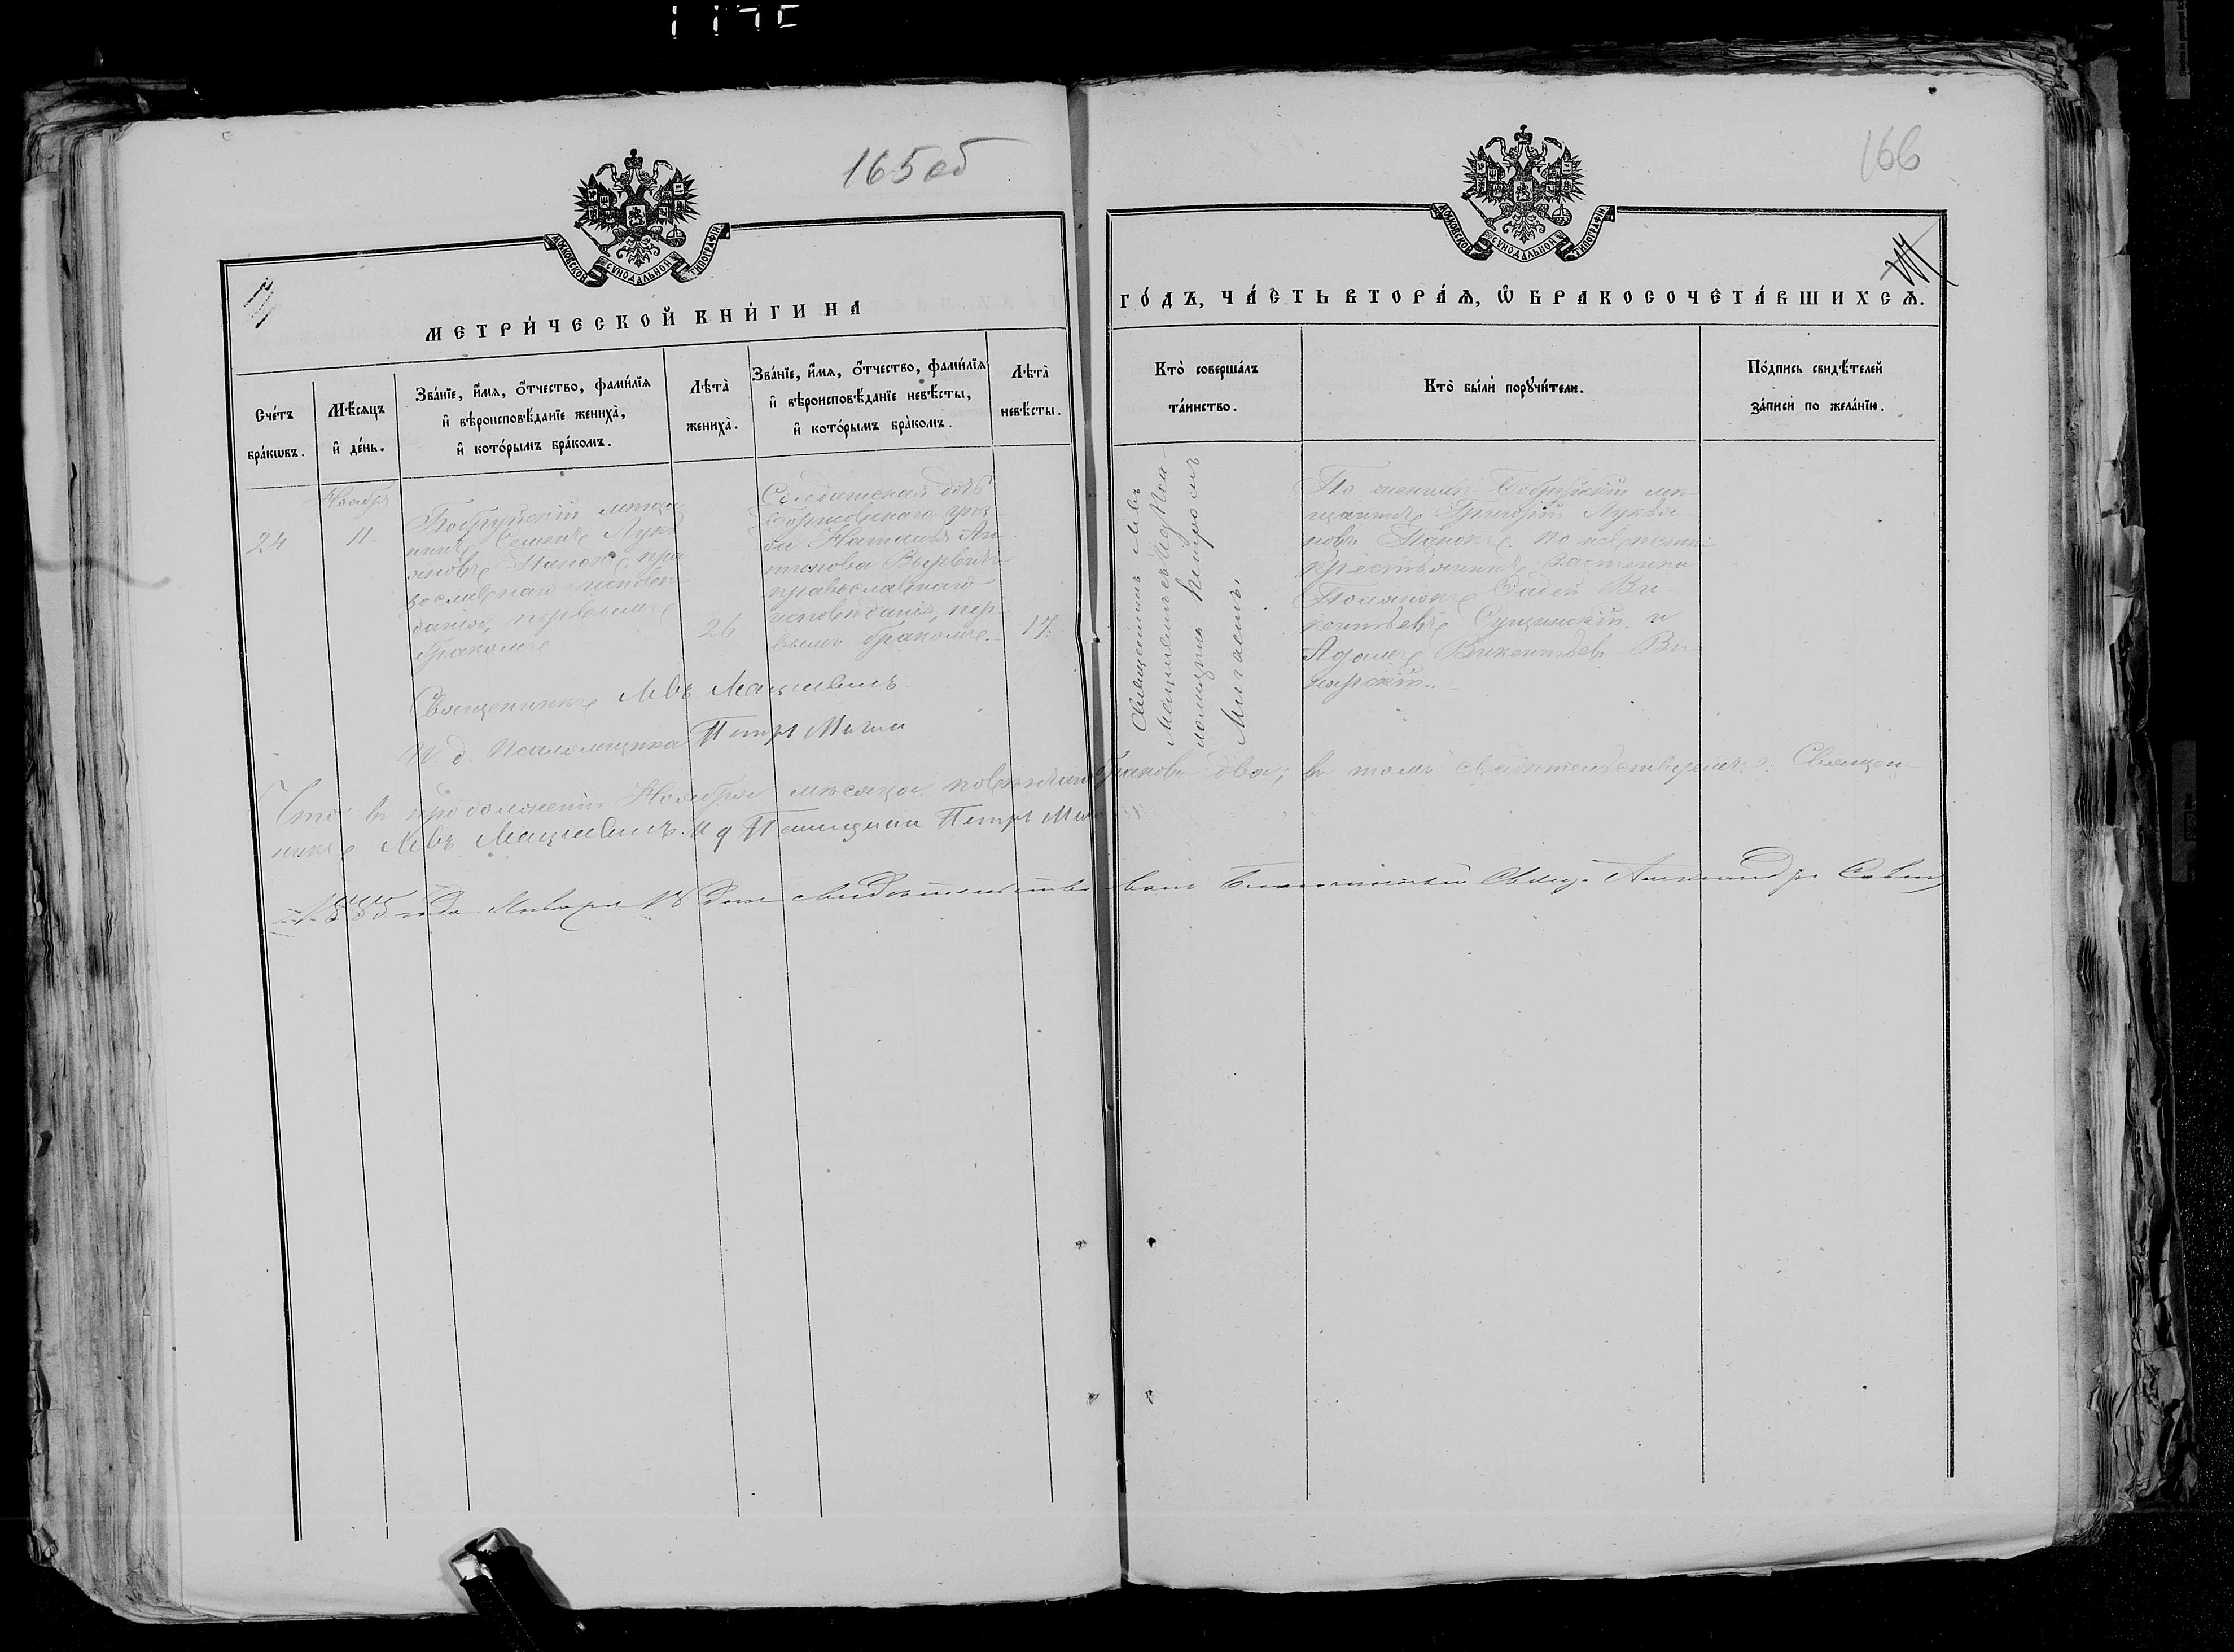 165 об
166
МОСКОВСКОЙ СѴНОДАЛЬНОЙ ТИПОГРАФІИ
МОСКОВСКОЙ СѴНОДАЛЬНОЙ ТИПОГРАФІИ
МЕТРИ́ЧЕСКОЙ КНИ́ГИ НА
ГО́ДЪ, ЧА́СТЬ ВТОРА́Ѧ, Ѡ БРАКОСОЧЕТА́ВШИХСѦ.
Сче́тъ
бра́кѡвъ.
Мѣ́сяцъ
и҆ де́нь.
Зва́нїе, и҆́мя, о҆́тчество, фами́лїя
и҆ вѣроисповѣ́данїе жениха̀,
и҆ кото́рымъ бра́комъ.
Лѣта̀
жениха̀.
Зва́нїе, и҆́мя, о҆́тчество, фами́лїя
и҆ вѣроисповѣ́данїе невѣ́сты,
и҆ кото́рымъ бра́комъ.
Лѣта̀
невѣ́сты.
Кто̀ соверша́лъ
та́инство.
Кто̀ бы́ли порꙋчи́тели.
По́дпись свидѣ́телей
за́писи по жела́нїю.
24
Ноября
11.
Бобруйскій мѣща
нинъ Семенъ Лукь
яновъ Панокъ, пра
вославнаго исповѣ
данія, первымъ
бракомъ
26
Солдатская дочь
Борисовскаго уѣз
да Наталья Ан
православнаго
исповѣданія, пер
вымъ бракомъ.
17.
Священникъ Левъ
Мацкевичъ и д Пса
ломщика Петромъ
По женихѣ Бобруйскій мѣ
щанинъ Григорій Лукья
новъ Панокъ. по невѣстѣ
крестьянинъ
Фадей Ви
кентьевъ Сущинскій и
Адамъ Викентьевъ
Священникъ Левъ Мацкевичъ
И. д. Псаломщика Петръ
Что въ продолженіи Ноября мѣсяца повѣнчано браковъ два; въ томъ свидѣтельствуемъ: Священ
никъ Левъ Мацкевичъ. И д Псаломщика Петръ
1885 года Января 18 дня свидѣтельствовалъ Благочинный Свящ. Александръ